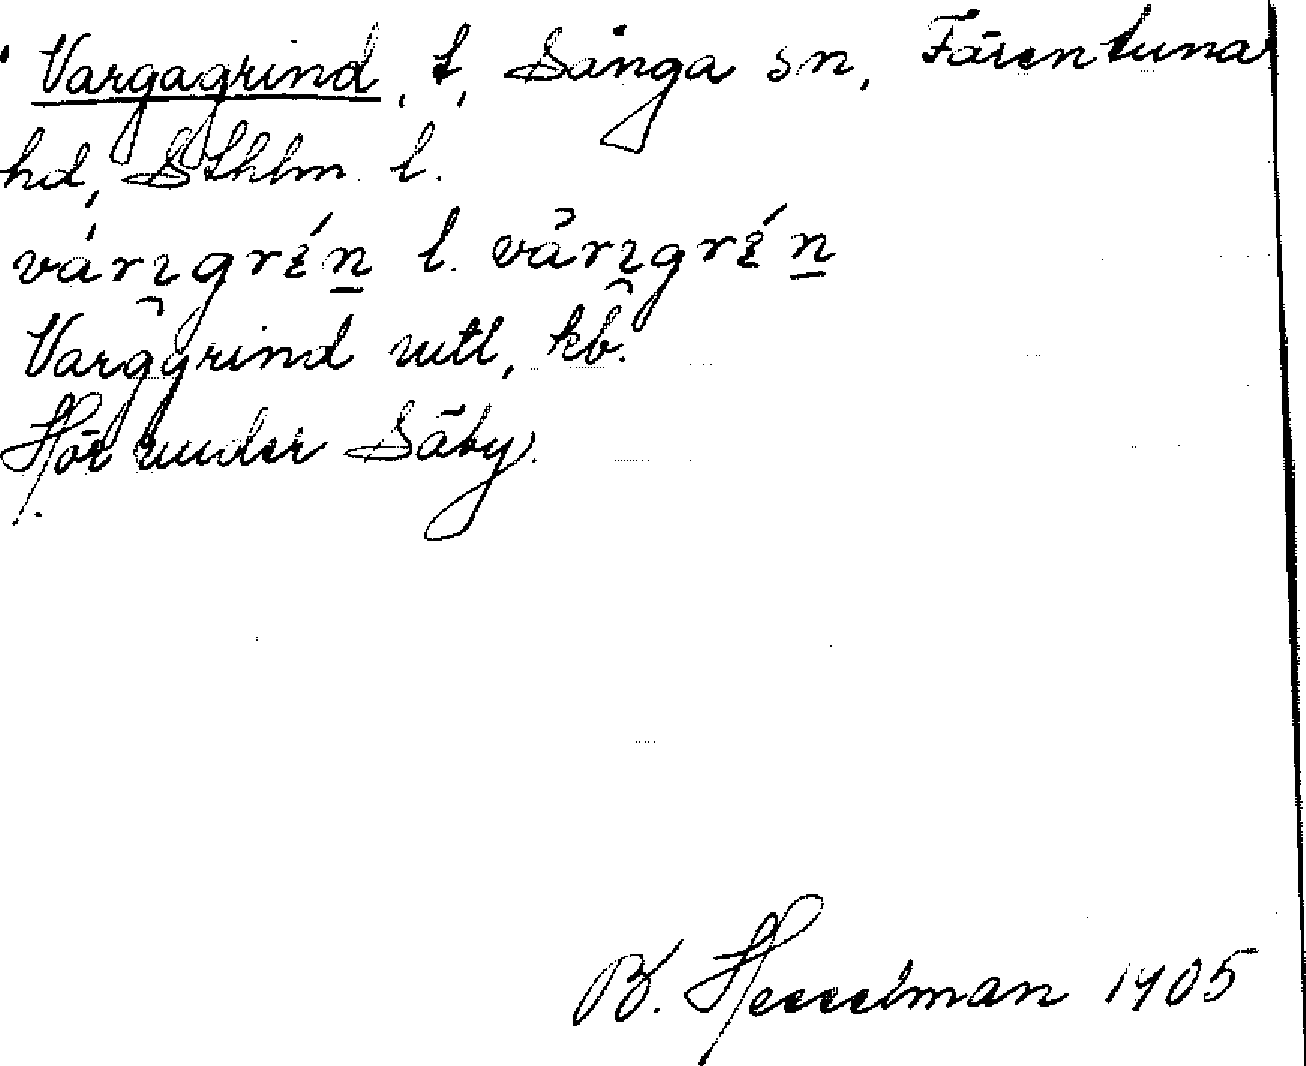 Vargagrind, t, Sånga sn, Färentuna
hd, Sthlm l.
l.
Varggrind utl, kb.
Hör under Säby.
B. Hesselman 1905